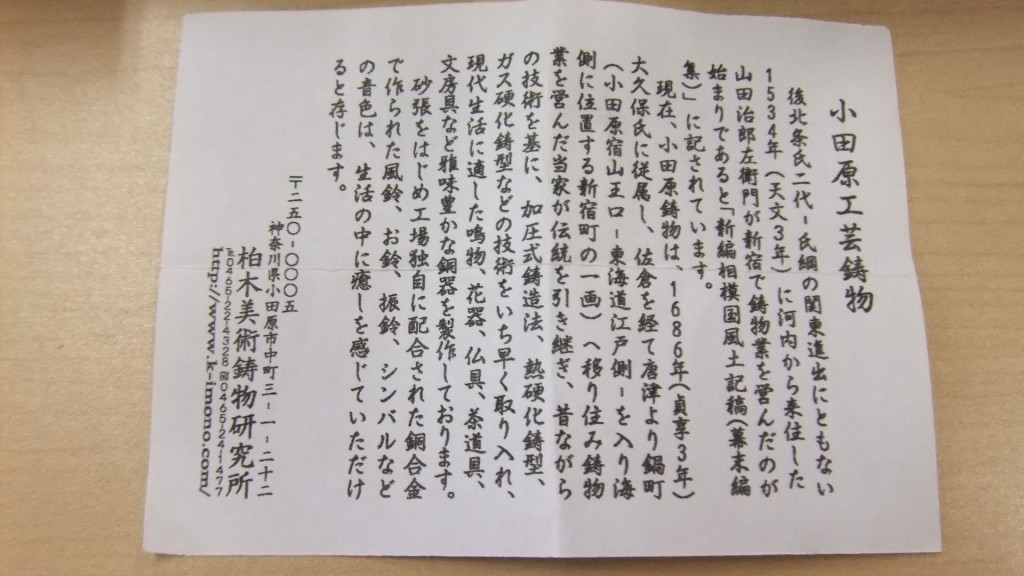 小田原工芸鋳物
後北条氏二代-氏綱の関東進出にともない
1534年（天文3年）に河内から来住した
山田治郎左衛門が新宿で鋳物業を営んだのが
始まりであると「新編相模国風土記稿（幕末編
集）」に記されています。
現在、小田原鋳物は、1686年（貞享3年）
大久保氏に従属し、佐倉を経て唐津より鍋町
（小田原宿山王口-東海道江戸側-を入り海
側に位置する新宿町の一画）へ移り住み鋳物
業を営んだ当家が伝統を引き継ぎ、昔ながら
の技術を基に、加圧式鋳造法、熱硬化鋳型、
ガス硬化鋳型などの技術をいち早く取り入れ、
現代生活に適した鳴物、花器、仏具、茶道具、
文房具など雅味豊かな銅器を製作しております。
砂張をはじめ工場独自に配合された銅合金
で作られた風鈴、お鈴、振鈴、シンバルなど
の音色は、生活の中に癒しを感じていただけ
ると存じます。
〒二五〇-〇〇〇五
神奈川県小田原市中町三-一-二十二
柏木美術鋳物研究所
℡0465-22-4328 ℻0465-24-1477
http://www.k-imono.com/